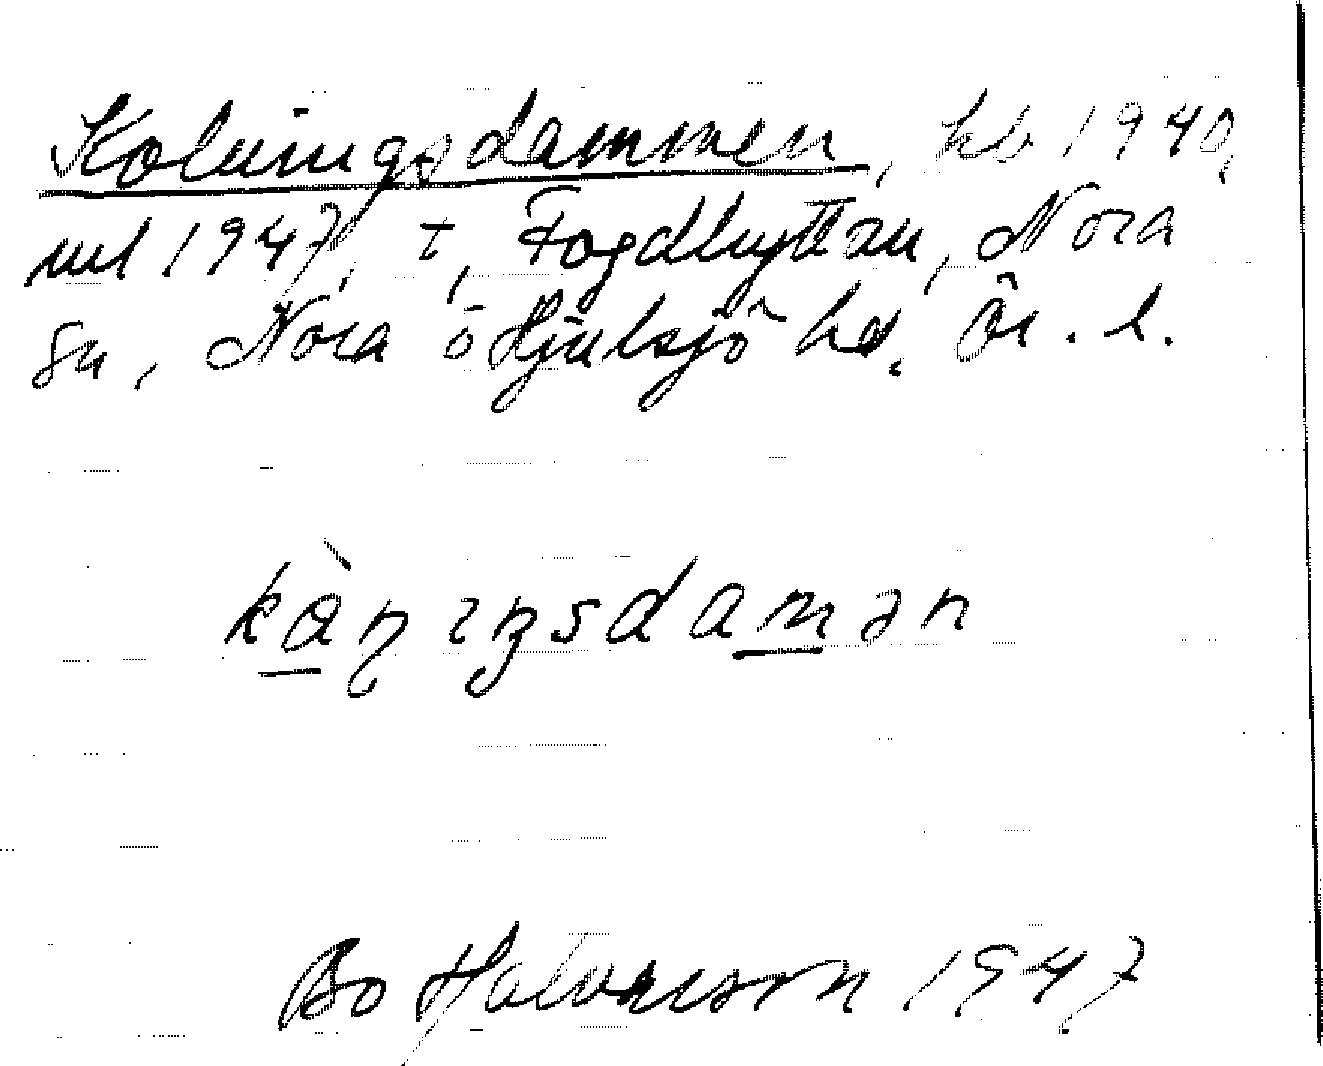 Kolningsdammen, kb 1940,
ml 1947, t, Fogdhyttan, Nora
sn, Nora o Hjulsjö hd. Ör. l.
kå̀ṇıŋsdamən
Bo Halvarsson 1947